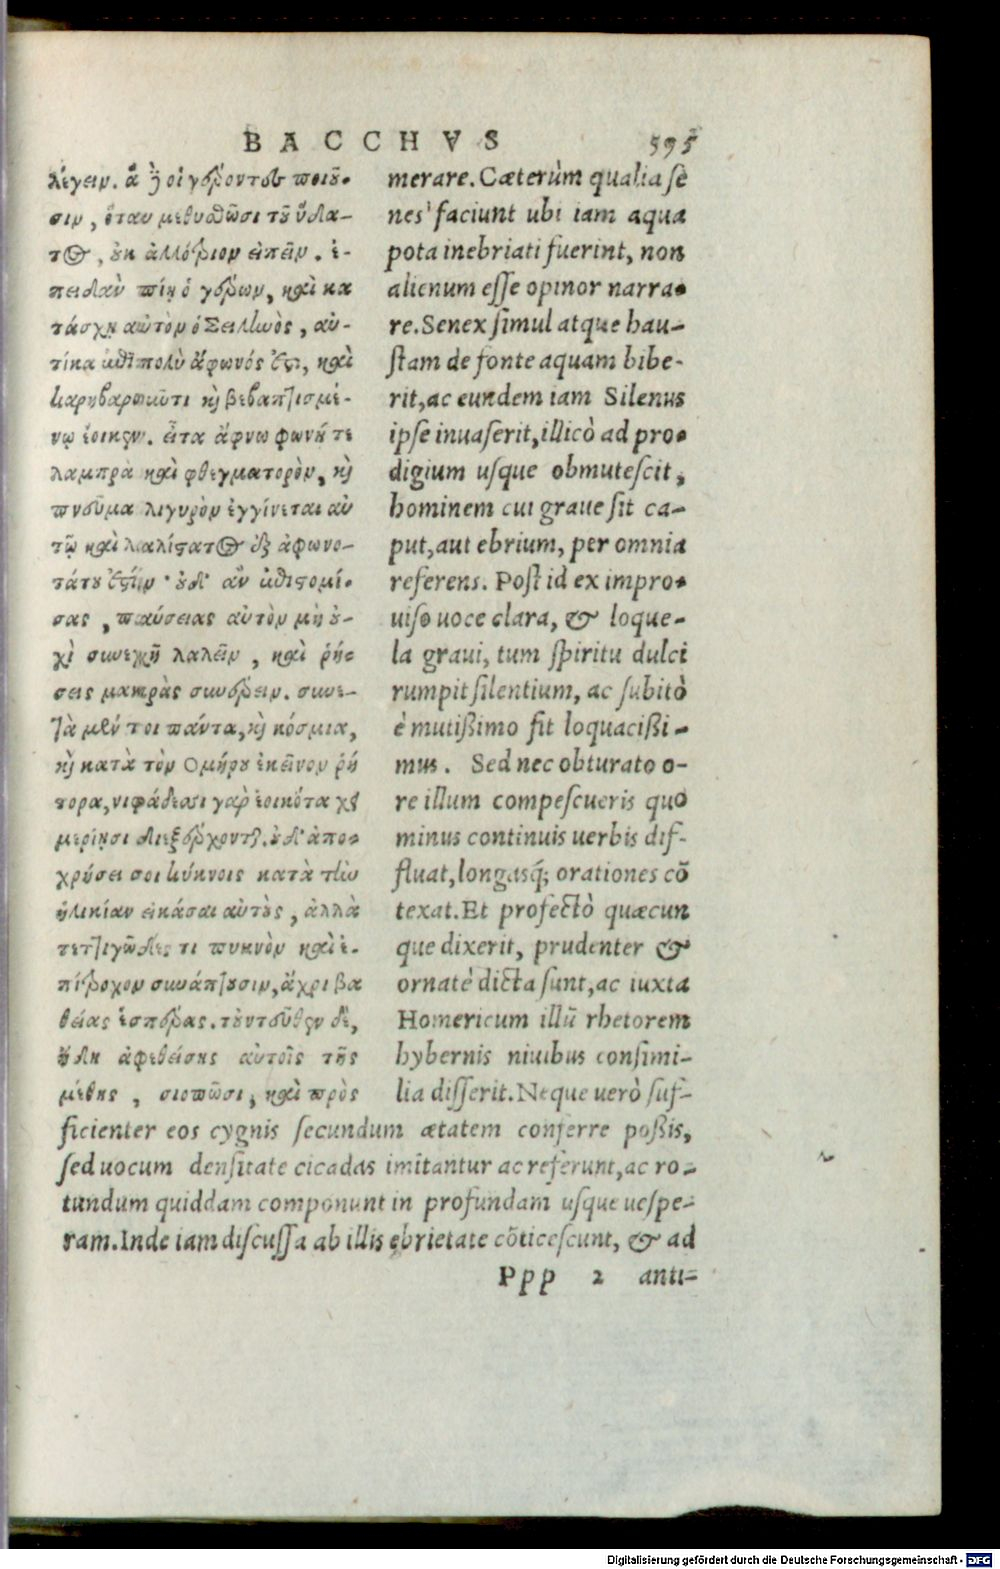 BACCHVS 595
λέγειν. ἃ ἢ οἱ γέροντες ποιοῦ-
σιν, ὅταν μεθυσθῶσι τοῦ ὕδα-
τος, οὐκ ἀλλότριον εἰπεῖν. ἐ-
πειδαὰν πίῃ ὁ γέρων, καὶ κα
τάσχῃ αὐτὸν ὁ Σειληνὸς, αὐ-
τίκα ἐπὶ πολὺ ἄφωνός ἐστι, καὶ
καρηβαροῦντι κὴ βεβαπτισμέ-
νῳ ἔοικεν. εἶτα ἄφνω φωνή τε
λαμπρὰ καὶ φθέγμα τορὸν, κὴ
πνεῦμα λιγυρὸν ἐγγίνεται αὐ
τῷ καὶ λαλίστατος ἐξ ἀφωνο-
τάτου ἐστίν· οὐδ' ἂν ἐπιστομί-
σας, παύσειας αὐτὸν μὴ οὐ-
χὶ συνεχῆ λαλεῖν, καὶ ῥή-
σεις μακρὰς συνείρειν. συνε-
τὰ μέν τοι πάντα, κὴ κόσμια,
κὴ κατὰ τὸν Ομήρου ἐκεῖνον ῥή
τορα, νιφάδεσσι γὰρ ἐοικότα χει
μερίῃσι διεξέρχονται. οὐδ' ἀπο-
χρήσει σοι κύκνοις κατὰ τὴν
ἡλικίαν εἰκάσαι αὐτοὺς, ἀλλὰ
τεττιγῶδές τι πυκνὸν καὶ ἐ-
πίτροχον συνάπτουσιν, ἄχρι βα
θείας ἑσπέρας. τοὐντεῦθεν δὲ,
ἤδη ἀφεθείσης αὐτοῖς τῆς
μέθης, σιωπῶσι, καὶ πρὸς
merare. Cæterùm qualia se
nes faciunt ubi iam aqua
pota inebriati fuerint, non
alienum esse opinor narra-
re. Senex simul atque hau-
stam de fonte aquam bibe-
rit, ac eundem iam Silenus
ipse inuaserit, illicò ad pro-
digium usque obmutescit,
hominem cui graue sit ca-
put, aut ebrium, per omnia
referens. Post id ex impro-
uiso uoce clara, & loque-
la graui, tum spiritu dulci
rumpit silentium, ac subitò
è mutißimo fit loquacißi-
mus. Sed nec obturato o-
re illum compescueris quo
minus continuis uerbis dif-
fluat, longasq́; orationes cō
texat. Et profectò quæcun
que dixerit, prudenter &
ornatè dicta sunt, ac iuxta
Homericum illū rhetorem
hybernis niuibus consimi-
lia disserit. Neque uerò suf-
ficienter eos cygnis secundum ætatem conferre poßis,
sed uocum densitate cicadas imitantur ac referunt, ac ro-
tundum quiddam componunt in profundam usque uespe-
ram. Inde iam discussa ab illis ebrietate cōticescunt, & ad
Ppp 2 anti-
Digitalisierung gefördert durch die Deutsche Forschungsgemeinschaft - DFG